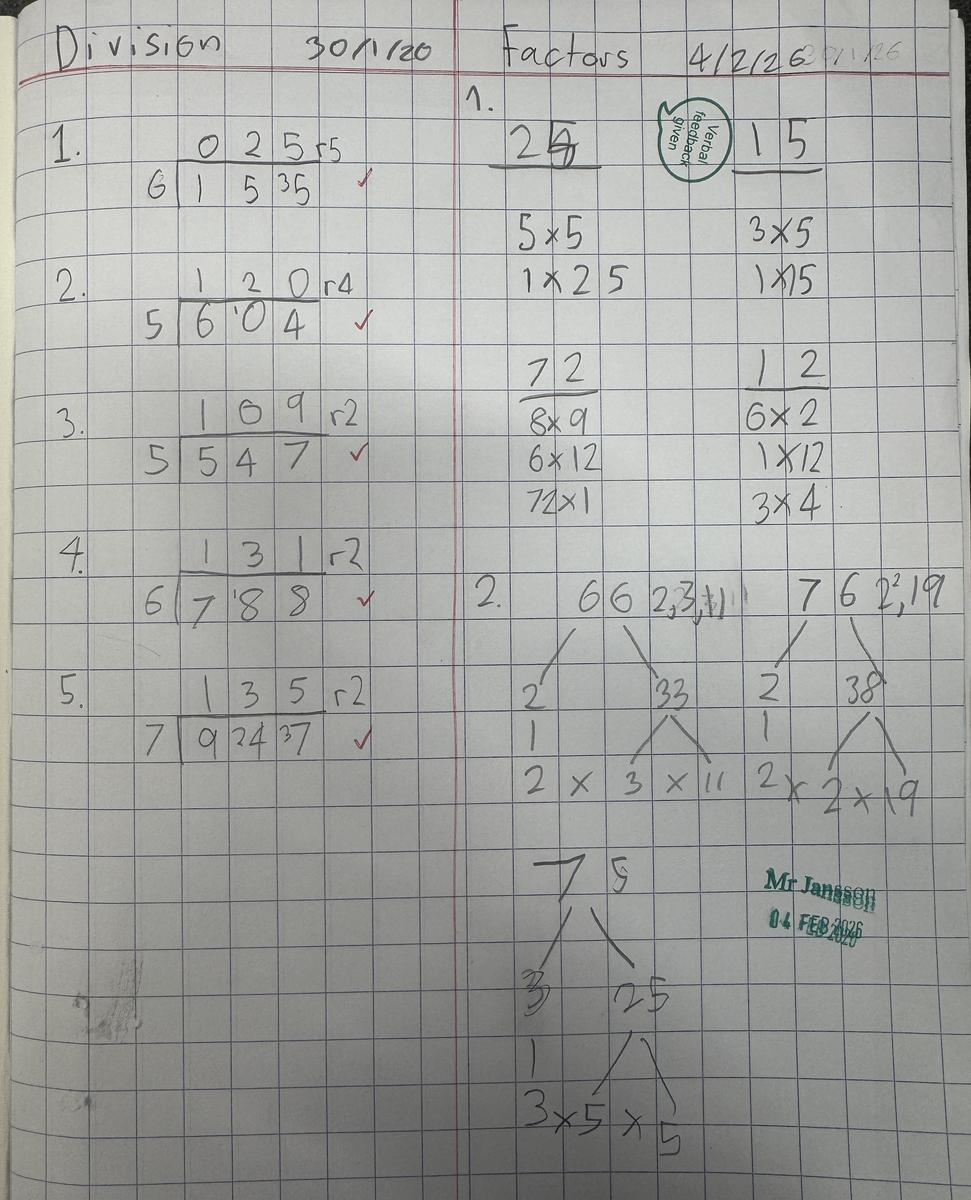 Division 30/1/20
1. 0 2 5 r5
6 1 5 35 ✓
2. 1 2 0 r4
5 6 '0 4 ✓
3. 1 0 9 r2
5 5 4 7 ✓
4. 1 3 1 r2
6 7 '8 8 ✓
5. 1 3 5 r2
7 9 24 37 ✓
Factors 4/2/26
1.
25
5×5
1×25
Verbal
feedback
given
15
3×5
1×15
72
8×9
6×12
72×1
12
6×2
1×12
3×4
2. 66 2,3,11
2 33
2 × 3 × 11
76 2²,19
2 38
2 × 2 × 19
75
3 25
3×5×5
Mr Jansson
04 FEB 2026